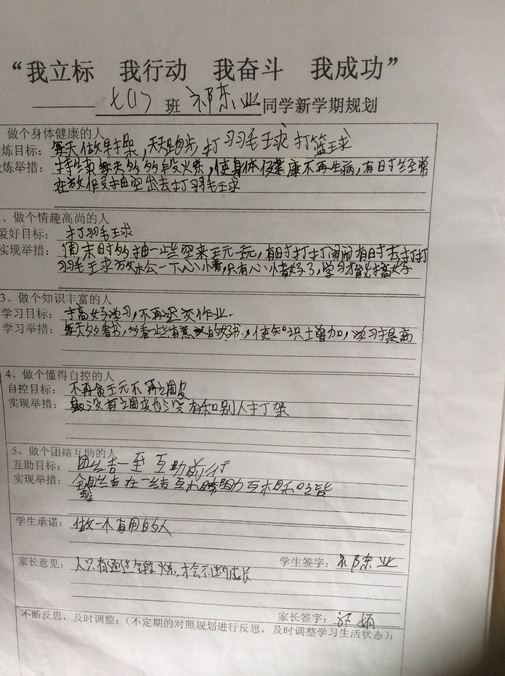 “我立标 我行动 我奋斗 我成功”
七(1) 班 祁东业 同学新学期规划
做个身体健康的人
炼目标: 每天做早操,天天跑步,打羽毛球 打篮球
炼举措: 持续每天多多锻炼,使身体健康不再生病,有时经常
在放假抽空出去打羽毛球
、做个情趣高尚的人
爱好目标: 打羽毛球
实现举措: 周末时多抽一些空来玩一玩,有时打打闹闹有时去打打
羽毛球放松一下心情,只有心情好了,学习才能提高好
3、做个知识丰富的人
学习目标: 提高好学习,不再迟交作业.
学习举措: 每天多看书,多看些有意义的好书,使知识上增加,学习提高
4、做个懂得自控的人
自控目标: 不再贪玩不再调皮
实现举措: 没有调皮也没有和别人打架
5、做个团结互助的人
互助目标: 团结一至 互助前行
实现举措: 团结在一起 互相帮助 互相和
学生承诺: 做一个有用的人
家长意见: 人只有通过锻炼,才会不断成长
学生签字: 祁东业
家长签字:
不断反思,及时调整:(不定期的对照规划进行反思,及时调整学习生活状态):